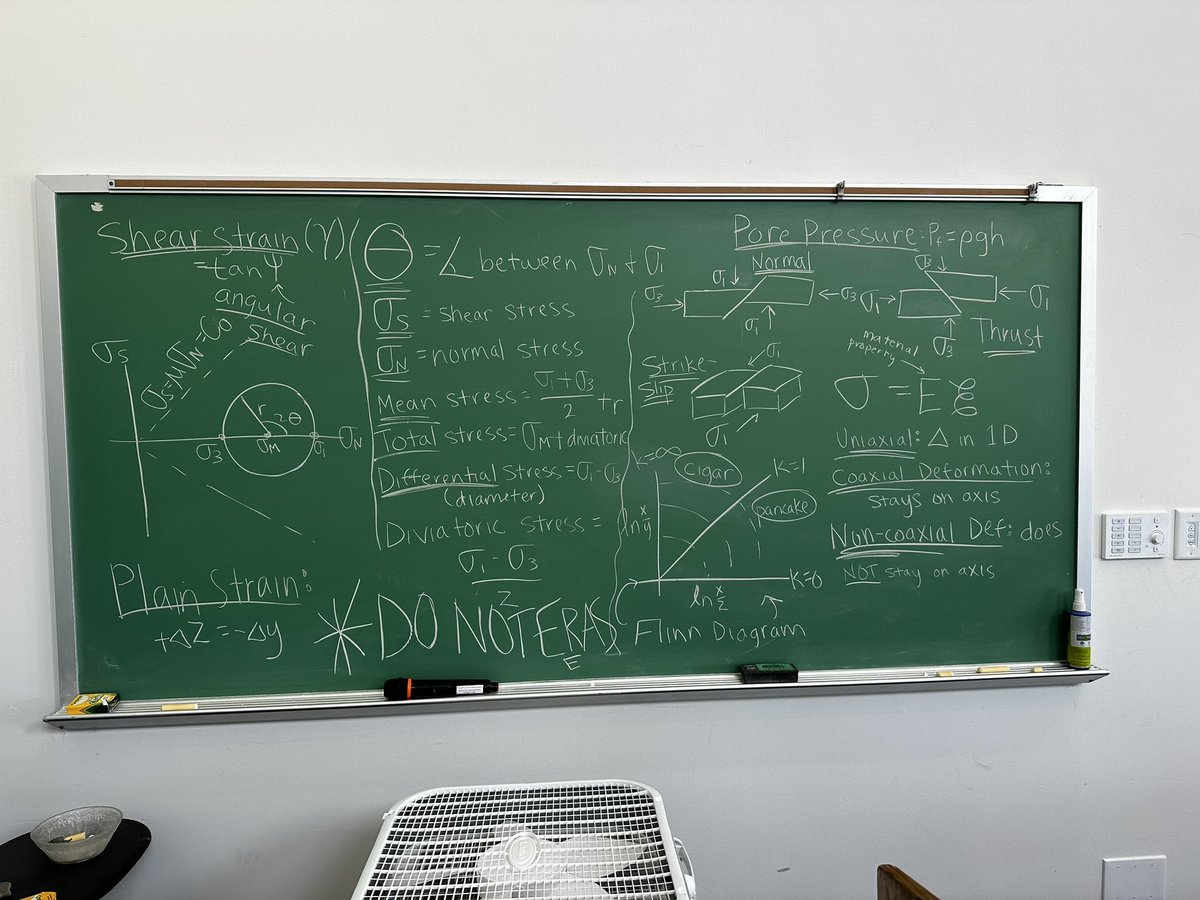 Shear strain (γ)
= tan ψ
angular
shear
σs
σs = MσN = C0
r
2θ
σ3
σM
σ1
σN
Plain Strain:
+ΔZ = -Δy
θ = ∠ between σN + σ1
σs = shear stress
σN = normal stress
Mean stress = (σ1 + σ3)/2 + r
Total stress = σM + diviatoric
Differential stress = σ1 - σ3
(diameter)
Diviatoric stress =
(σ1 - σ3)/2
* DO NOT ERASE
Pore Pressure: Pf = ρgh
Normal
σ1
σ3
σ3
σ1
σ3
σ1
σ1
σ3
Thrust
Strike-
Slip
σ1
σ1
material
property
σ = E ξ
K=∞
cigar
K=1
pancake
ln x/y
K=0
ln x/z
Flinn Diagram
Uniaxial: Δ in 1D
Coaxial Deformation:
stays on axis
Non-coaxial Def: does
NOT stay on axis